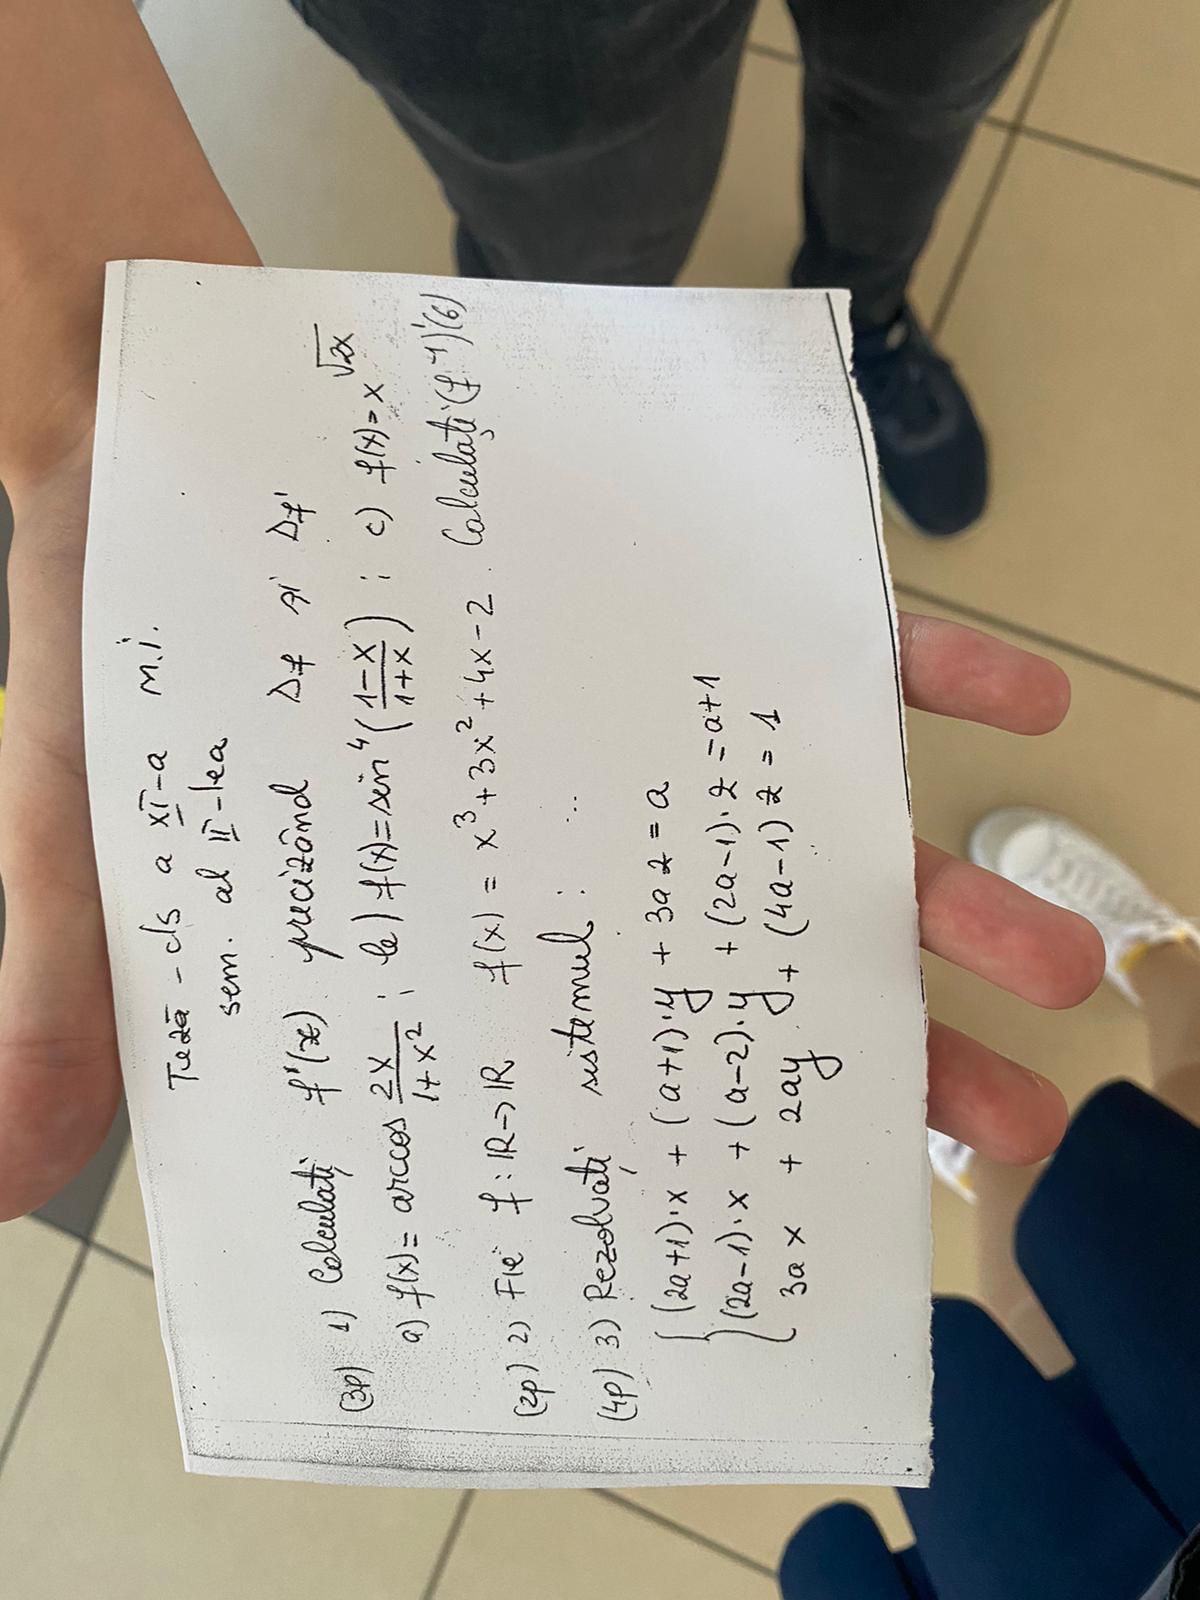 Teză - cls a XI-a M.i.
sem. al II-lea
(3p) 1) Calculați f'(x) precizând Δf și Δf'
a) f(x) = arccos 2x/(1+x²) ; b) f(x) = sin⁴((1-x)/(1+x)) ; c) f(x) = x^√2x
(2p) 2) Fie f : ℝ→ℝ f(x) = x³+3x²+4x-2. Calculați (f⁻¹)'(6)
(4p) 3) Rezolvați sistemul :
(2a+1)·x + (a+1)·y + 3az = a
(2a-1)·x + (a-2)·y + (2a-1)·z = a+1
3ax + 2ay + (4a-1)z = 1